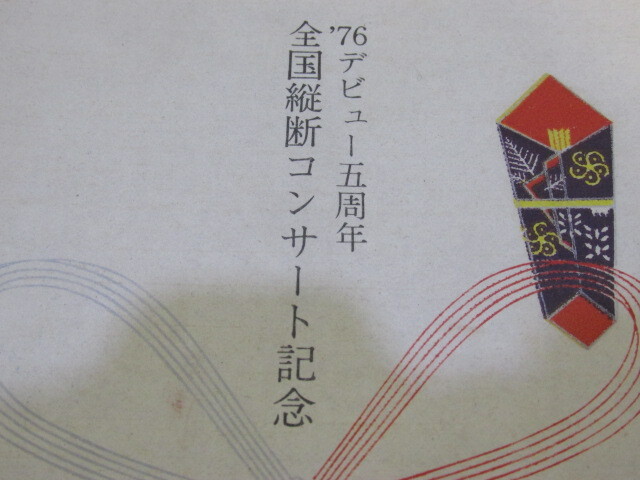 '76デビュー五周年
全国縦断コンサート記念